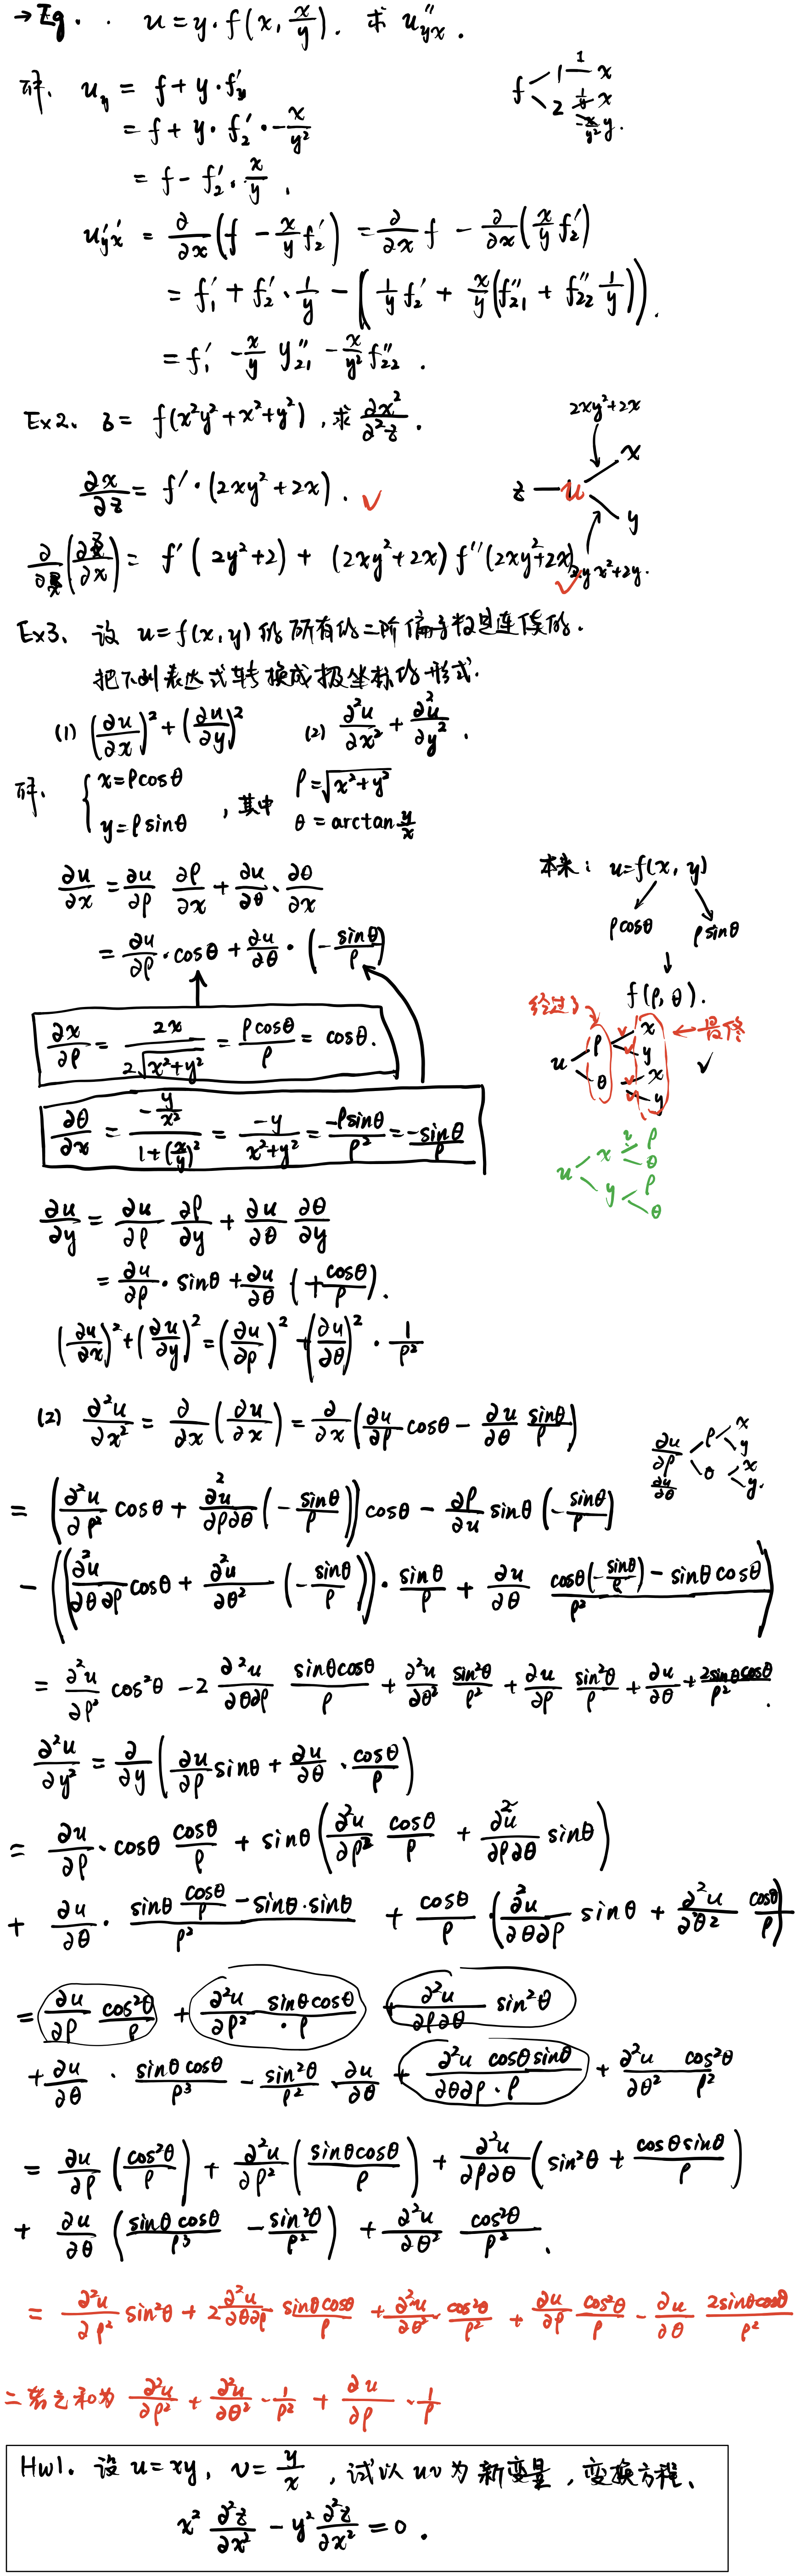 →Eg. . u = y·f(x, x/y). 求 u''yx .
解. u_y = f + y·f'y
= f + y·f₂'·-x/y²
= f - f₂'·x/y .
f < 1 —1— x
2 1/y x
-x/y² y.
u'y'x = ∂/∂x (f - x/y f₂') = ∂/∂x f - ∂/∂x (x/y f₂')
= f₁' + f₂'·1/y - (1/y f₂' + x/y (f₂₁'' + f₂₂'' 1/y)).
= f₁' - x/y y₂₁'' - x/y² f₂₂'' .
Ex2. z = f(x²y²+x²+y²) , 求 ∂x²/∂²z .
2xy²+2x
∂x/∂z = f'·(2xy²+2x) . ✓
z — u x
y
∂/∂x (∂z/∂x) = f'(2y²+2) + (2xy²+2x) f''(2xy²+2x) ✓
2yx²+2y.
Ex3. 设 u=f(x,y) 的所有的二阶偏导数是连续的.
把下列表达式转换成极坐标的形式.
(1) (∂u/∂x)² + (∂u/∂y)² (2) ∂²u/∂x² + ∂²u/∂y² .
解. { x=ρcosθ
y=ρsinθ , 其中 ρ=√(x²+y²)
θ = arctan y/x
∂u/∂x = ∂u/∂ρ ∂ρ/∂x + ∂u/∂θ · ∂θ/∂x
= ∂u/∂ρ · cosθ + ∂u/∂θ · (-sinθ/ρ)
∂x/∂ρ = 2x/(2√(x²+y²)) = ρcosθ/ρ = cosθ.
∂θ/∂x = (-y/x²)/(1+(x/y)²) = -y/(x²+y²) = -ρsinθ/ρ² = -sinθ/ρ
本来: u=f(x, y)
ρcosθ ρsinθ
↓
f(ρ, θ).
经过 ←最终
u ρ x
y
θ x
y
✓
u x ρ
θ
y ρ
θ
∂u/∂y = ∂u/∂ρ ∂ρ/∂y + ∂u/∂θ ∂θ/∂y
= ∂u/∂ρ · sinθ + ∂u/∂θ (+cosθ/ρ).
(∂u/∂x)² + (∂u/∂y)² = (∂u/∂ρ)² + (∂u/∂θ)² · 1/ρ²
(2) ∂²u/∂x² = ∂/∂x (∂u/∂x) = ∂/∂x (∂u/∂ρ cosθ - ∂u/∂θ sinθ/ρ)
∂u/∂ρ ∂u/∂θ ρ x
y
θ x
y.
= (∂²u/∂ρ² cosθ + ∂²u/∂ρ∂θ (-sinθ/ρ)) cosθ - ∂ρ/∂u sinθ (-sinθ/ρ)
- ((∂²u/∂θ∂ρ cosθ + ∂²u/∂θ² (-sinθ/ρ)) · sinθ/ρ + ∂u/∂θ (cosθ(-sinθ/ρ) - sinθ cosθ)/ρ²)
= ∂²u/∂ρ² cos²θ - 2 ∂²u/∂θ∂ρ sinθcosθ/ρ + ∂²u/∂θ² sin²θ/ρ² + ∂u/∂ρ sin²θ/ρ + ∂u/∂θ + 2sinθcosθ/ρ² .
∂²u/∂y² = ∂/∂y (∂u/∂ρ sinθ + ∂u/∂θ · cosθ/ρ)
= ∂u/∂ρ · cosθ cosθ/ρ + sinθ (∂²u/∂ρ² cosθ/ρ + ∂²u/∂ρ∂θ sinθ)
+ ∂u/∂θ · (sinθ cosθ/ρ - sinθ·sinθ)/ρ² + cosθ/ρ · (∂²u/∂θ∂ρ sinθ + ∂²u/∂θ² cosθ/ρ)
= ∂u/∂ρ cos²θ/ρ + ∂²u/∂ρ² sinθcosθ/·ρ + ∂²u/∂ρ∂θ sin²θ
+ ∂u/∂θ · sinθ cosθ/ρ³ - sin²θ/ρ² · ∂u/∂θ + ∂²u cosθ sinθ/∂θ∂ρ·ρ + ∂²u/∂θ² cos²θ/ρ²
= ∂u/∂ρ (cos²θ/ρ) + ∂²u/∂ρ² (sinθcosθ/ρ) + ∂²u/∂ρ∂θ (sin²θ + cosθ sinθ/ρ)
+ ∂u/∂θ (sinθ cosθ/ρ³ - sin²θ/ρ²) + ∂²u/∂θ² cos²θ/ρ² .
= ∂²u/∂ρ² sin²θ + 2 ∂²u/∂θ∂ρ sinθcosθ/ρ + ∂²u/∂θ² · cos²θ/ρ² + ∂u/∂ρ cos²θ/ρ - ∂u/∂θ 2sinθcosθ/ρ²
二者之和为 ∂²u/∂ρ² + ∂²u/∂θ² · 1/ρ² + ∂u/∂ρ · 1/ρ
Hw1. 设 u=xy, v=y/x , 试以 uv 为新变量 , 变换方程.
x² ∂²z/∂x² - y² ∂²z/∂x² = 0 .